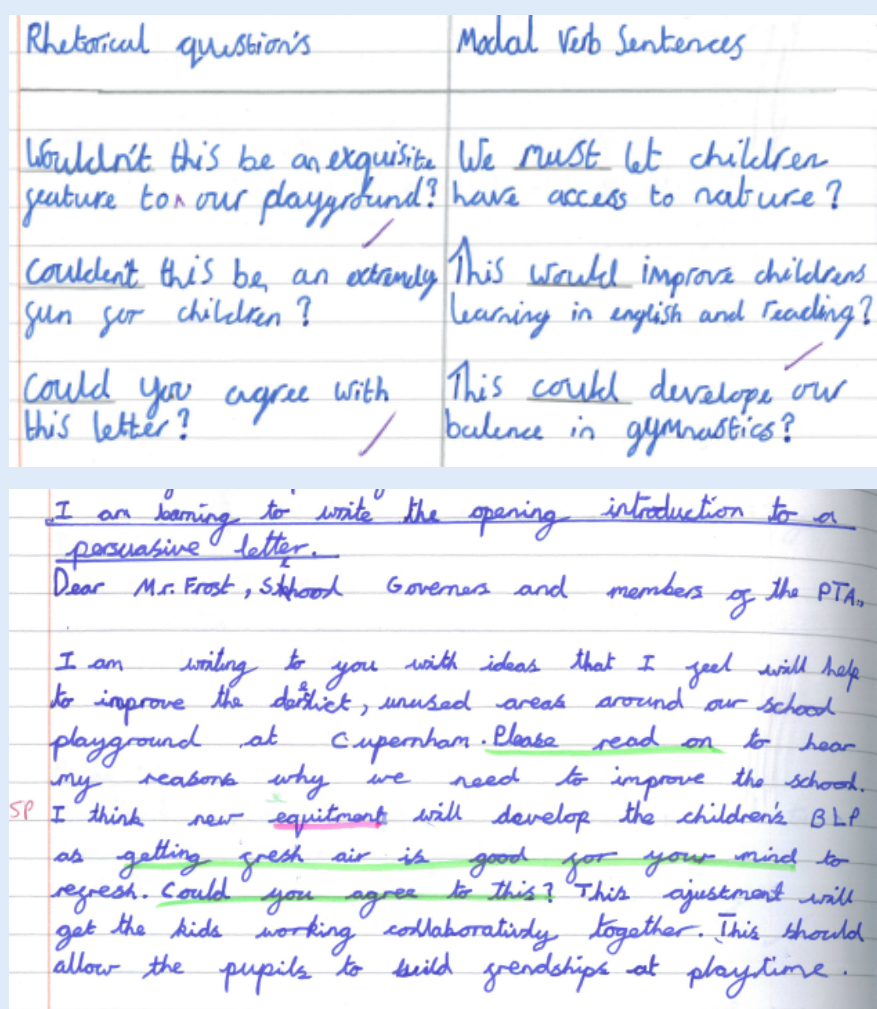 Rhetorical question's
Modal Verb Sentences
Wouldn't this be an exquisite
feature to^ our playground?
Couldent this be an extremely
fun for children?
Could you agree with
this letter?
We must let children
have access to nature?
This would improve childrens
learning in english and reading?
This could develope our
balence in gymnastics?
I am learning to write the opening introduction to a
persuasive letter.
Dear Mr. Frost, School Governers and members of the PTA,
I am writing to you with ideas that I feel will help
to improve the derelict, unused areas around our school
playground at Cupernham. Please read on to hear
my reasons why we need to improve the school.
SP I think new equitment will develop the children's BLP
as getting fresh air is good for your mind to
refresh. Could you agree to this? This ajustment will
get the kids working collaboratively together. This should
allow the pupils to build frendships at playtime.